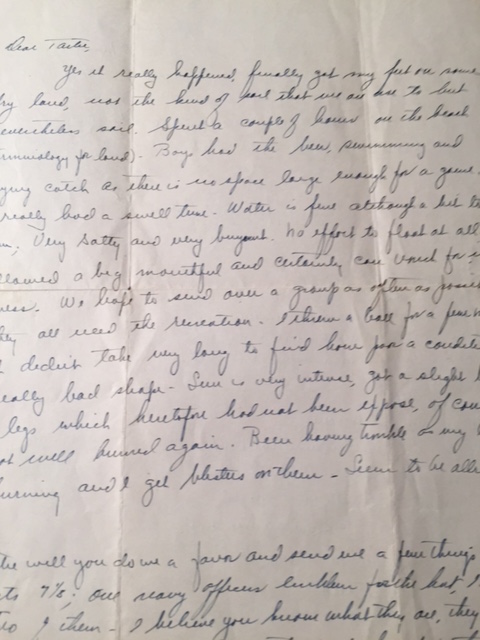 Dear Tastee,
Yes it really happened, finally got my feet on some
dry land, not the kind of soil that we are use to but
nevertheless soil. Spent a couple of hours on the beach
(terminology for land). Boys had the beer, swimming and
playing catch as there is no space large enough for a game.
really had a swell time. Water is fine although a bit
Very salty and very buoyant. No effort to float at all
swallowed a big mouthful and certainly can vouch for
We hope to send over a group as often as possible
they all need the recreation. I threw a ball for a few
didn't take very long to find how poor a condition
really bad shape. Sun is very intense, got a slight
legs which heretofore had not been expose, of course
got well burned again. Been having trouble on my
burning and I get blisters on them. Seem to be
will you do me a favor and send me a few things
7⅛; one navy officers emblem for the hat,
of them. I believe you know what they are, they